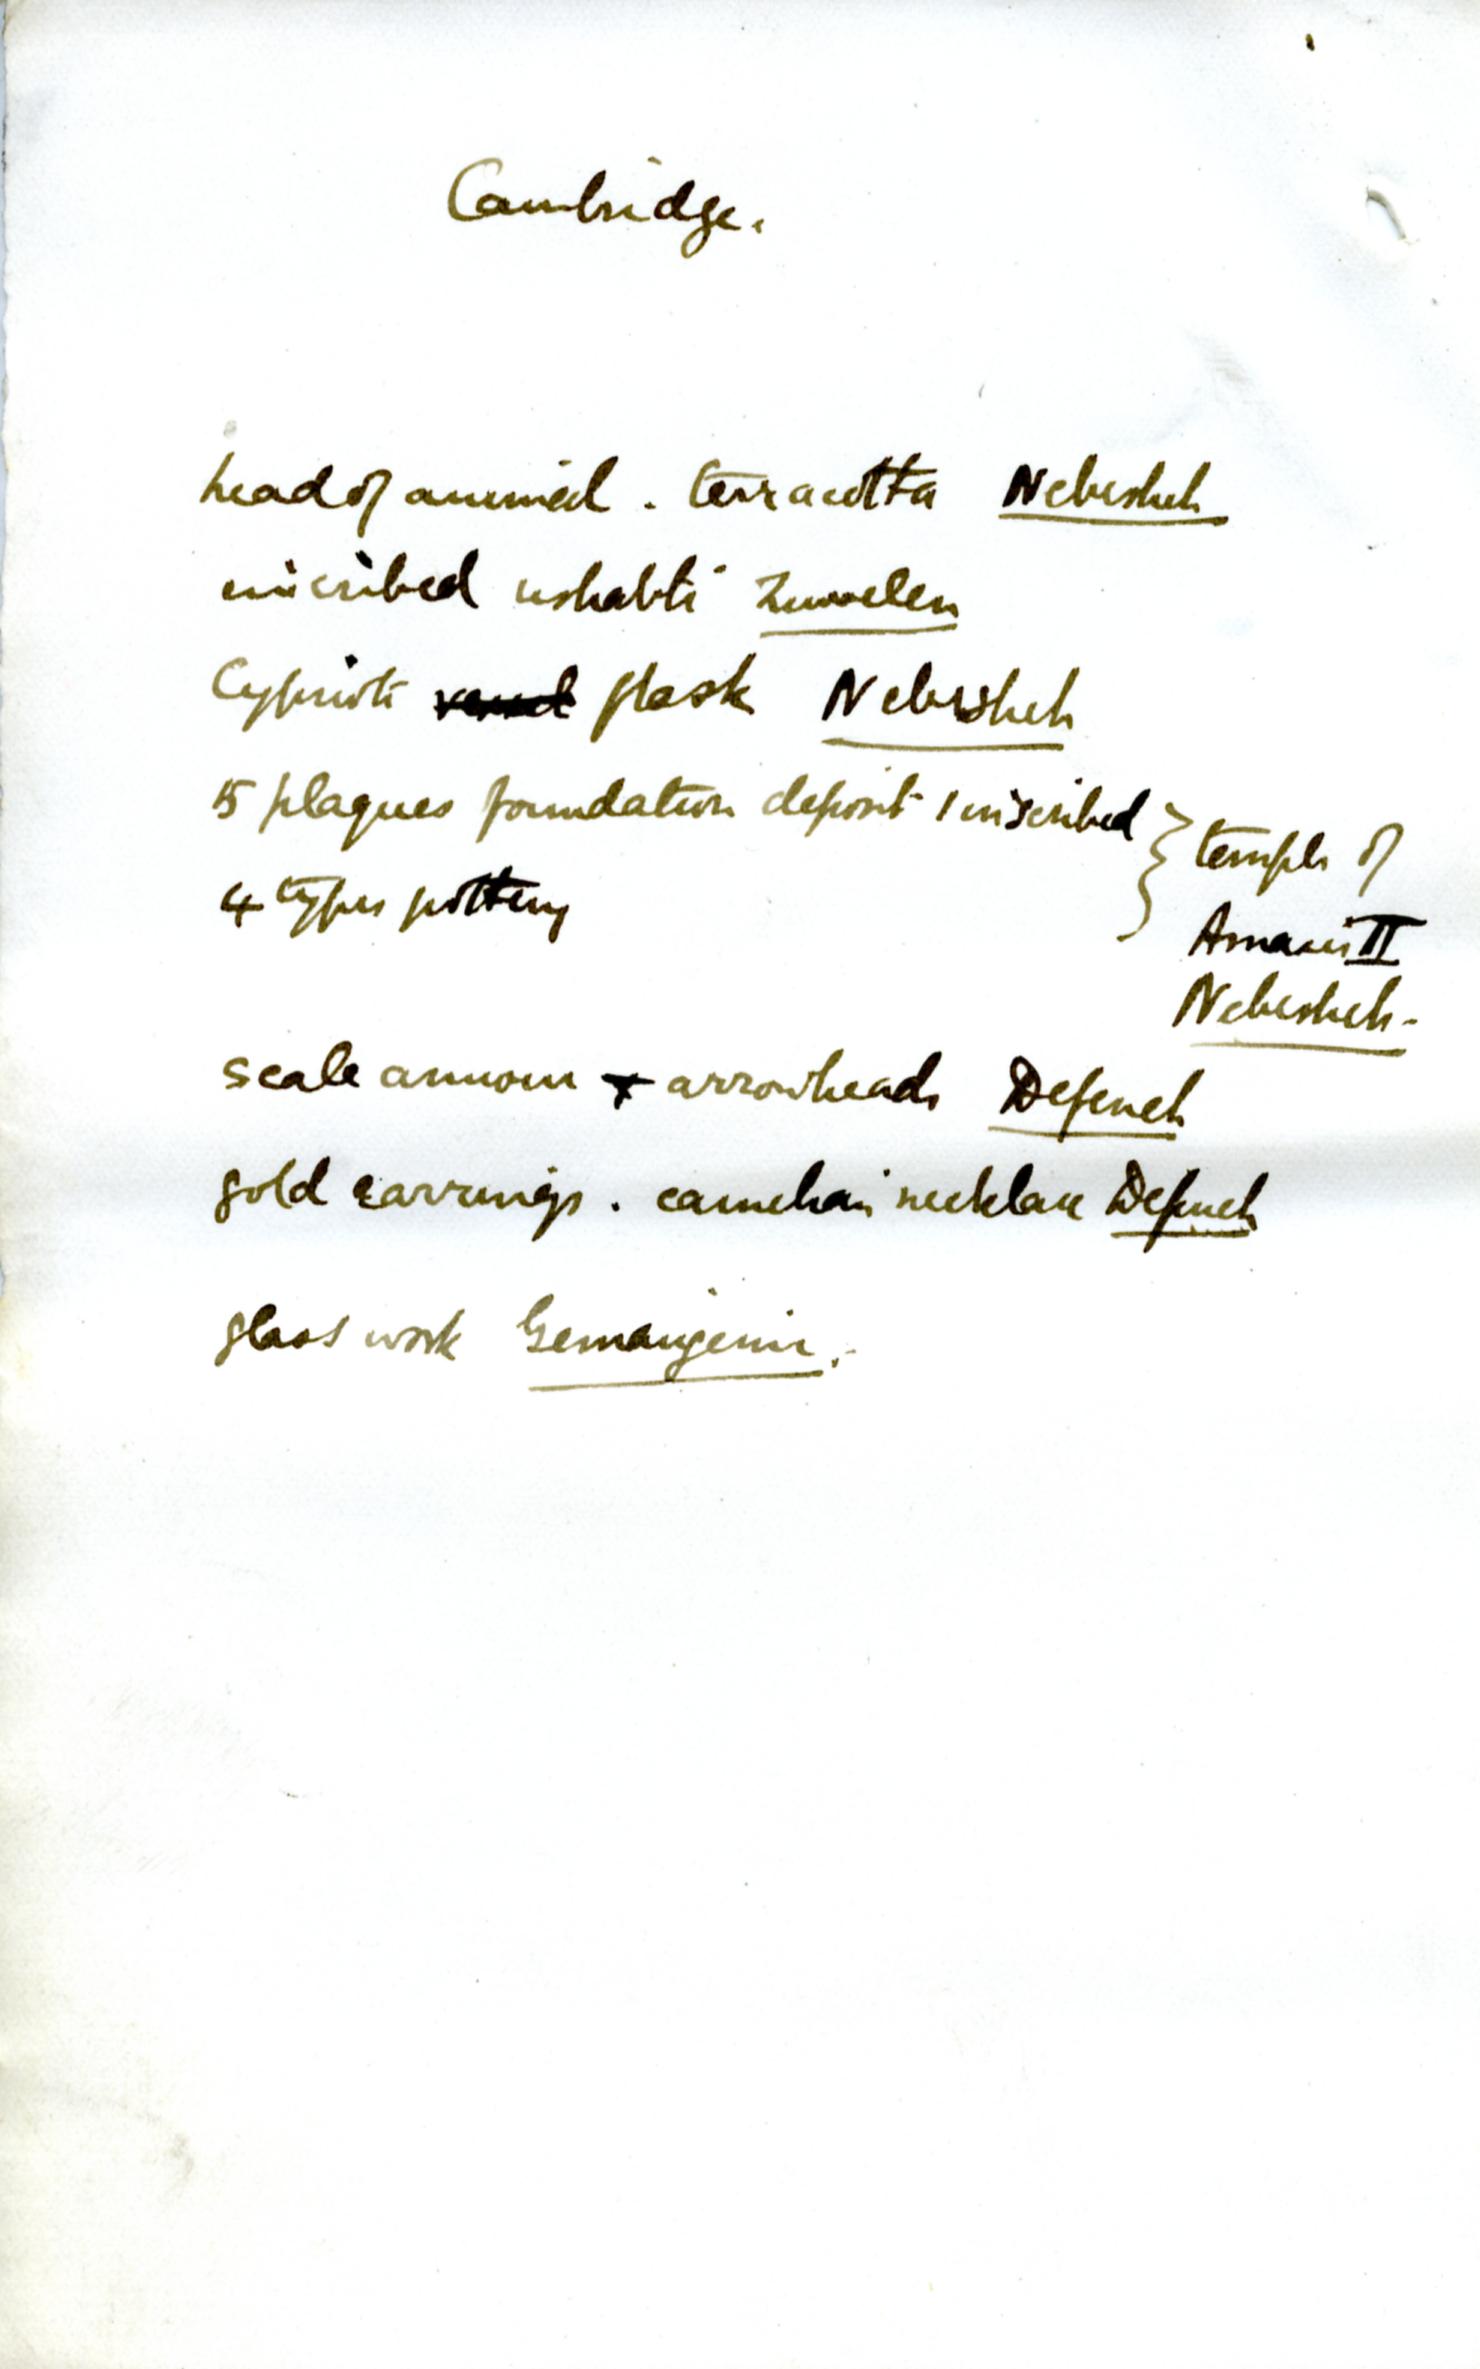 Cambridge.
head of animal . terracotta Nebesheh
inscribed ushabti Zuwelen
Cypriote vessel flask Nebesheh
5 plaques foundation deposit 1 inscribed } temple of
4 types pottery
Amasis II
Nebesheh.
scale armour + arrowheads Defeneh
gold earrings . carnelian necklace Defeneh
glass work Gemaiyemi.